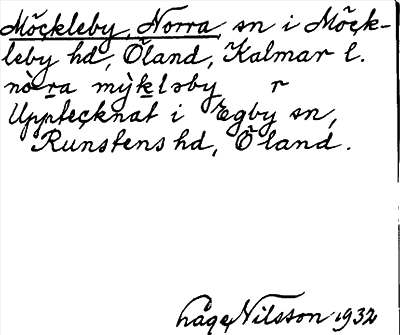 Möckleby, Norra sn i Möck-
leby hd, Öland, Kalmar l.
nò̱ra mỳḵləby r
Upptecknat i Egby sn,
Runstens hd, Öland.
Åge Nilsson 1932